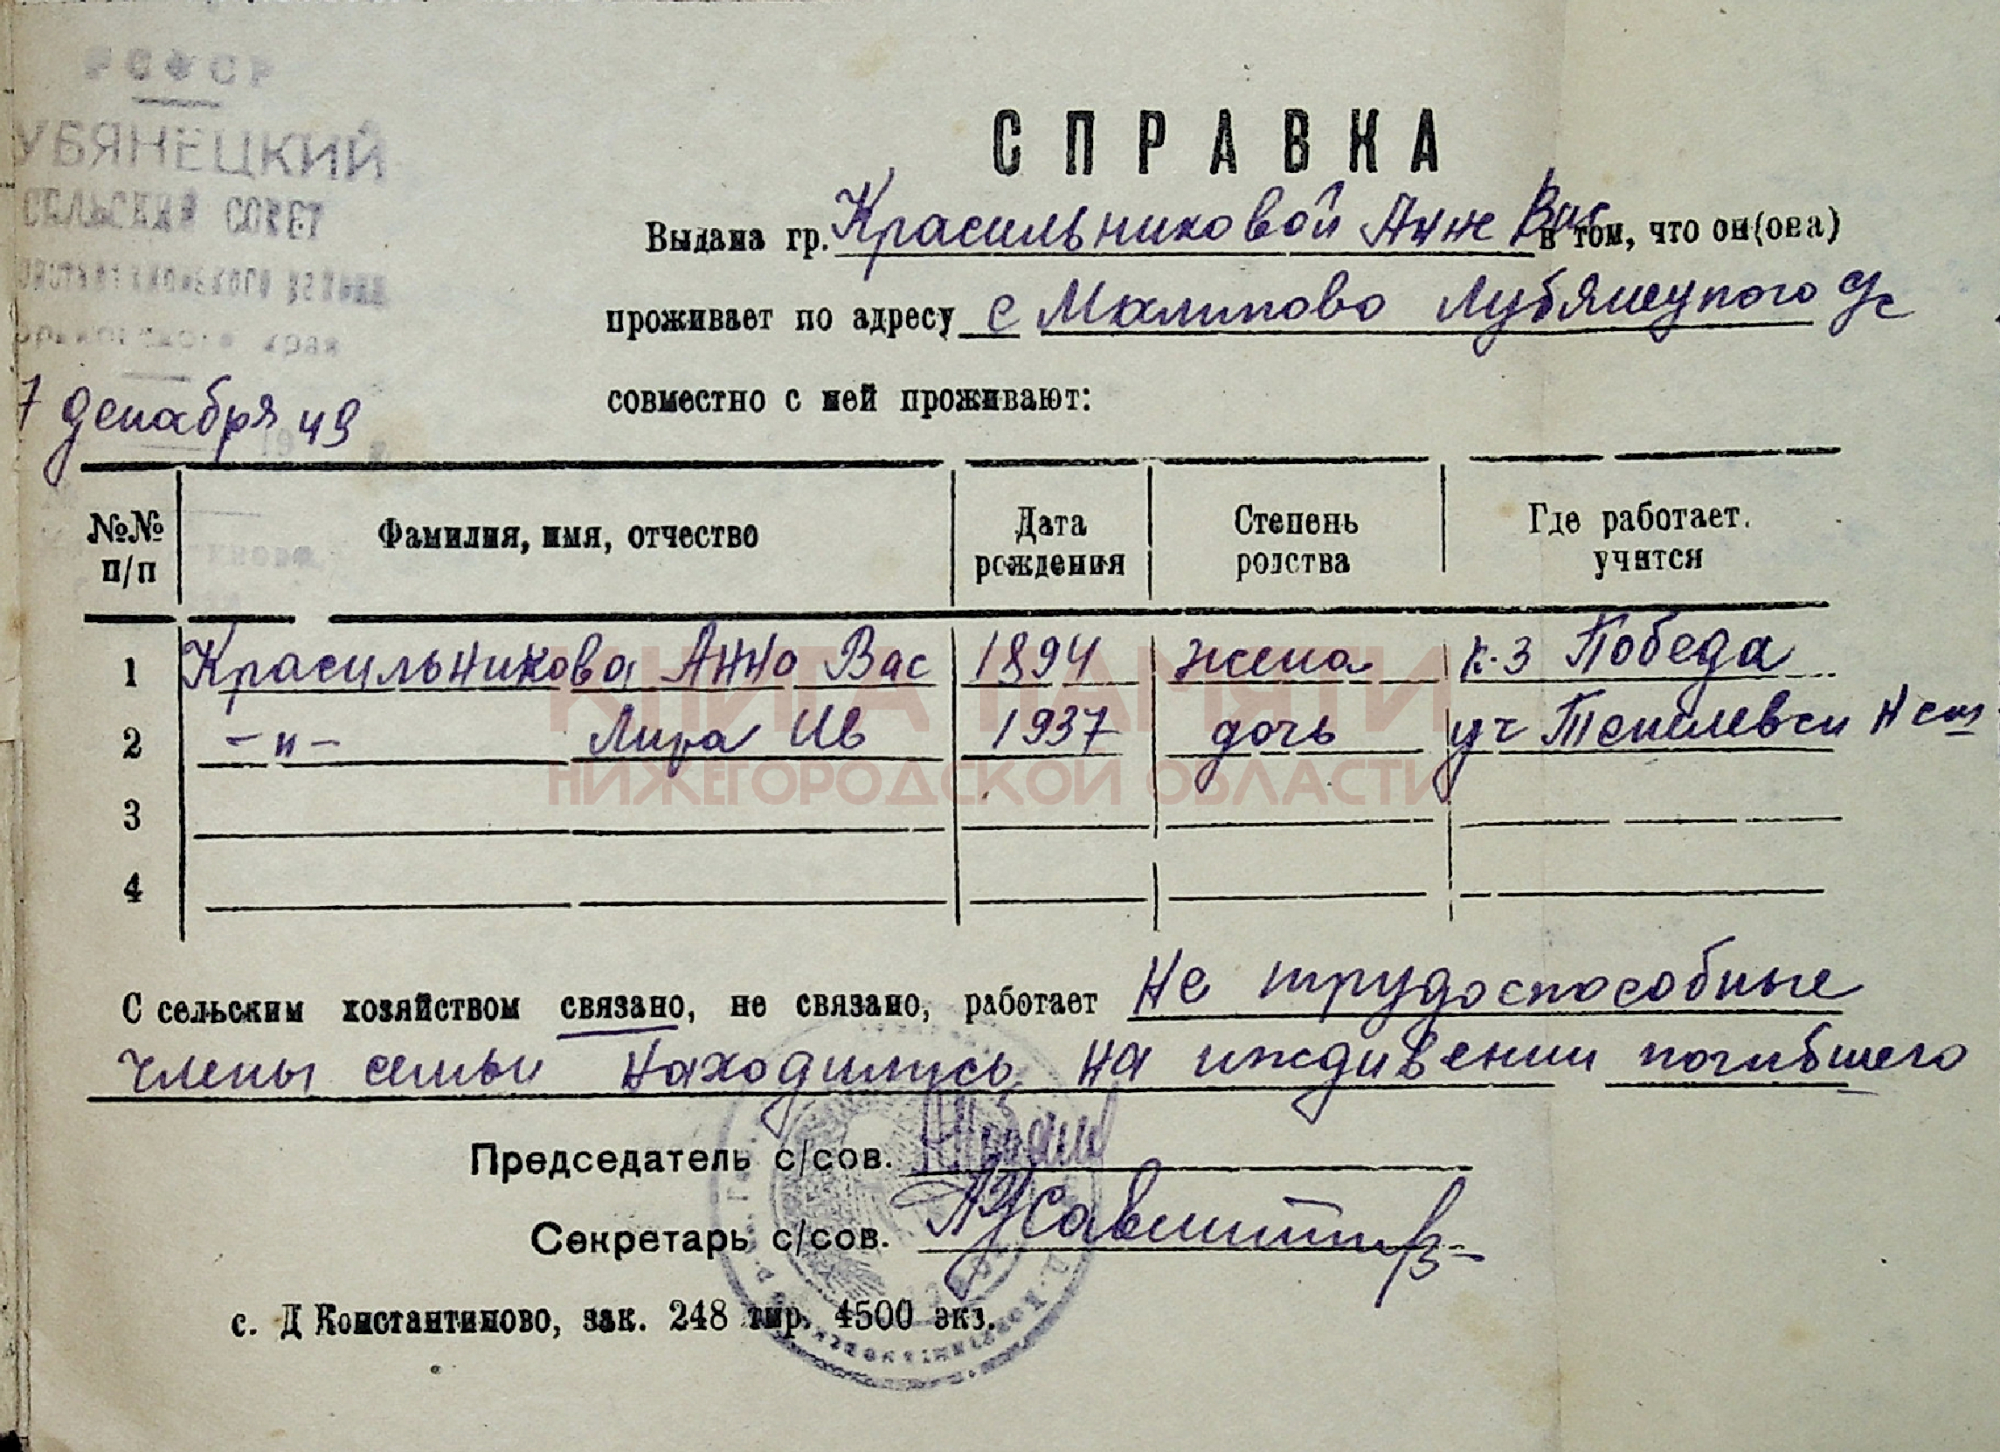 РСФСР
УБЯНЕЦКИЙ
СЕЛЬСКИЙ СОВЕТ
края
7 декабря 49
СПРАВКА
Выдана гр. Красильниковой Анне Вас в том, что он(она)
проживает по адресу с Малипово Лубянецкого с/с
совместно с ней проживают:
№№ п/п
Фамилия, имя, отчество
Дата рождения
Степень родства
Где работает, учится
1 Красильникова Анна Вас 1894 жена к-з Победа
2 -"- Лира Ив 1937 дочь уч Тепелевск Н
3
4
КНИГА ПАМЯТИ
НИЖЕГОРОДСКОЙ ОБЛАСТИ
С сельским хозяйством связано, не связано, работает Не трудоспособные
члены семьи находились на иждивении погибшего
Председатель с/сов.
Секретарь с/сов.
с. Д Константиново, зак. 248 тир. 4500 экз.